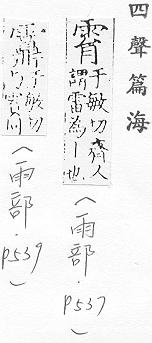 四聲篇海
于敏切齊人謂雷為丨也
(雨部.p537)
于敏切
(雨部.p539)